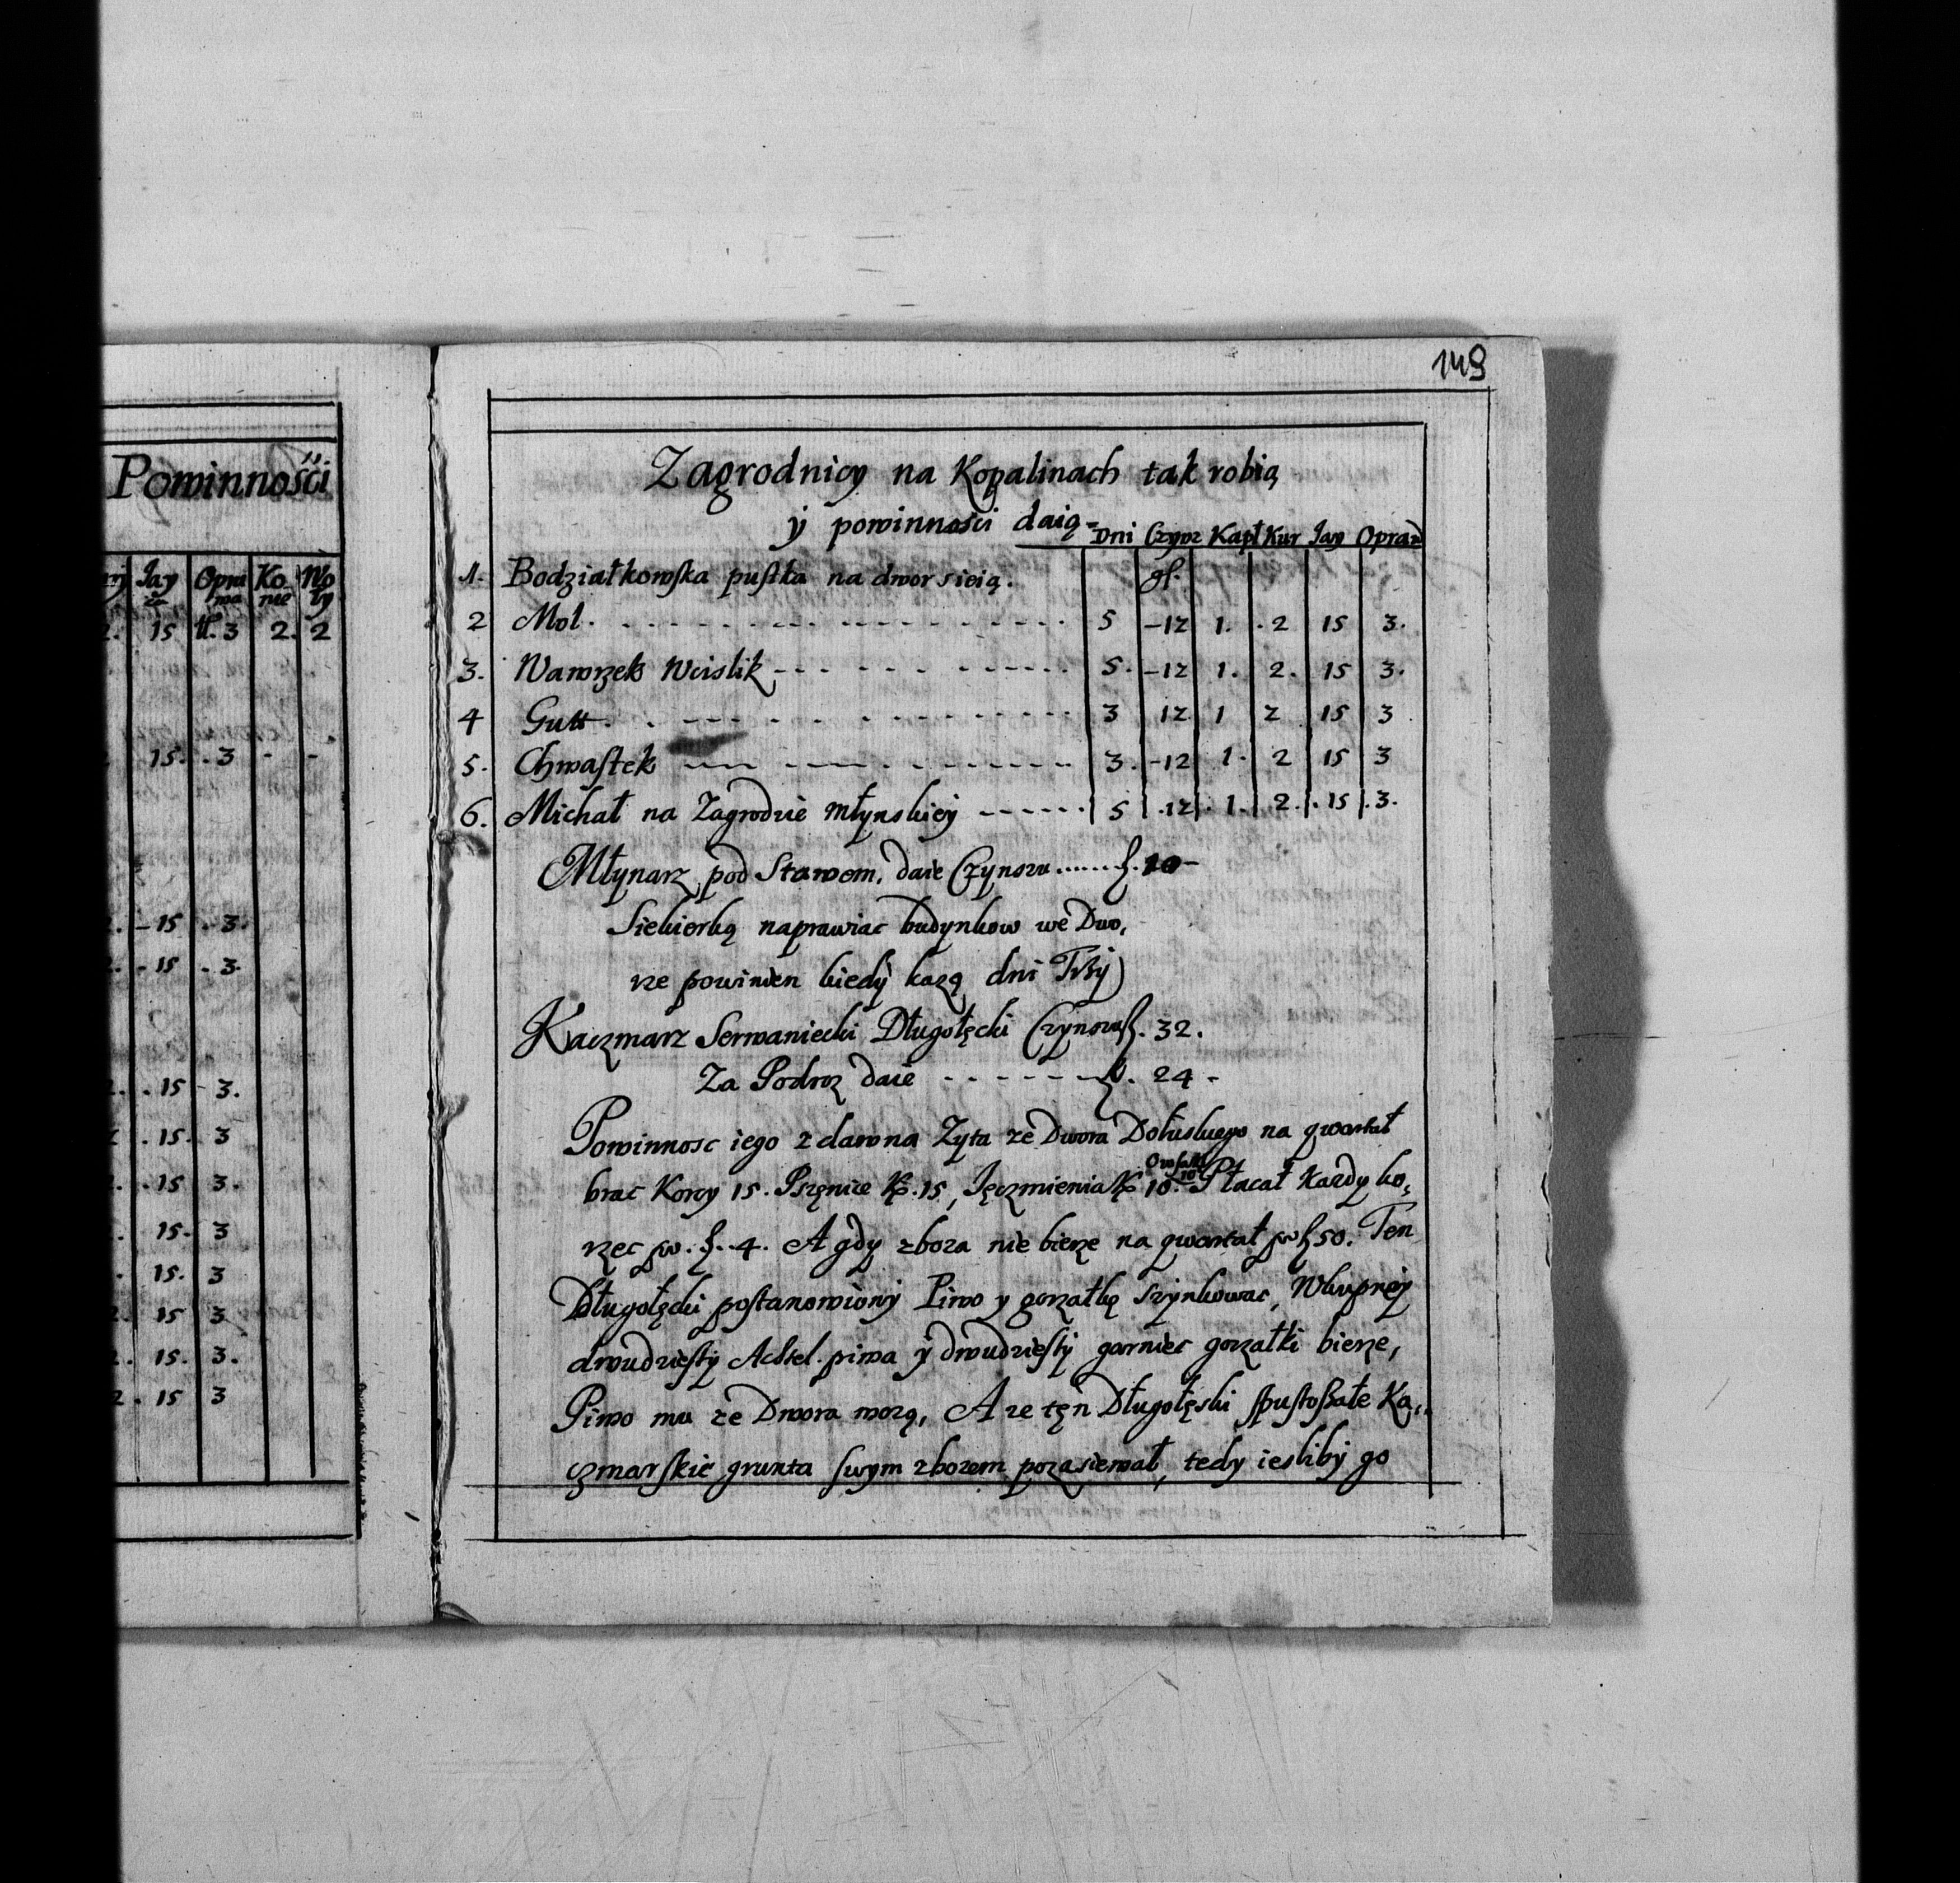 149
Powinności
Jay za Opra wa Ko nie Wo ły
2. 15 tl. 3 2. 2
15. . 3 - -
2. - 15 . 3.
2. - 15 . 3.
2. . 15 - 3.
2 . 15. 3
2. . 15 3.
. 15. 3
. 15. 3
2. 15 3
2. 15. 3.
2. 15 3
Zagrodnicy na Kopalinach tak robią
ÿ powinnosci daią
Dni Czynz Kapł Kur Jay Opraw
1. Bodziałkowska pustka na dwor sieią. gl.
2 Mol. 5 -12 1. . 2 15 3.
3. Wawrzek Wcislik 5. -12 1. 2. 15 3.
4 Gutt. 3 12 1 2 15 3
5. Chwastek 3. -12 1. 2 15 3
6. Michał na Zagrodzie młynskieÿ 5 .12 . 1. 2. . 15 . 3.
Młynarz pod Stawem, daie Czynszu ...... f. 10 -
Siekierką naprawiac budynkow we Dwo,
rze powinien kiedÿ każą dni Trzÿ
Kaczmarz Serwaniecki Długołęcki Czynszu f. 32.
Za Podroz daie - - - - - - f. 24 -
Powinnosc iego zdawna Zyta ze Dwora Dołuskiego na qwartał
brac Korcy 15. Pszęnice K. 15, Jęczmienia K. 10. Owsa K. 10 Płacał Kazdy ko,
rzec po. f. 4. A gdy zboza nie bierze na qwartał po f. 50. Ten
Długołęcki postanowionÿ Piwo y gorzałkę szynkowac, Wkupneÿ
dwudziestÿ Achtel. piwa ÿ dwudziestÿ garniec gorzałki bierze,
Piwo mu ze Dwora wozą, A ze tęn Długołęski spustoszałe Ka,
czmarskie grunta swym zbozem pozasiewał, tedy iesliby go